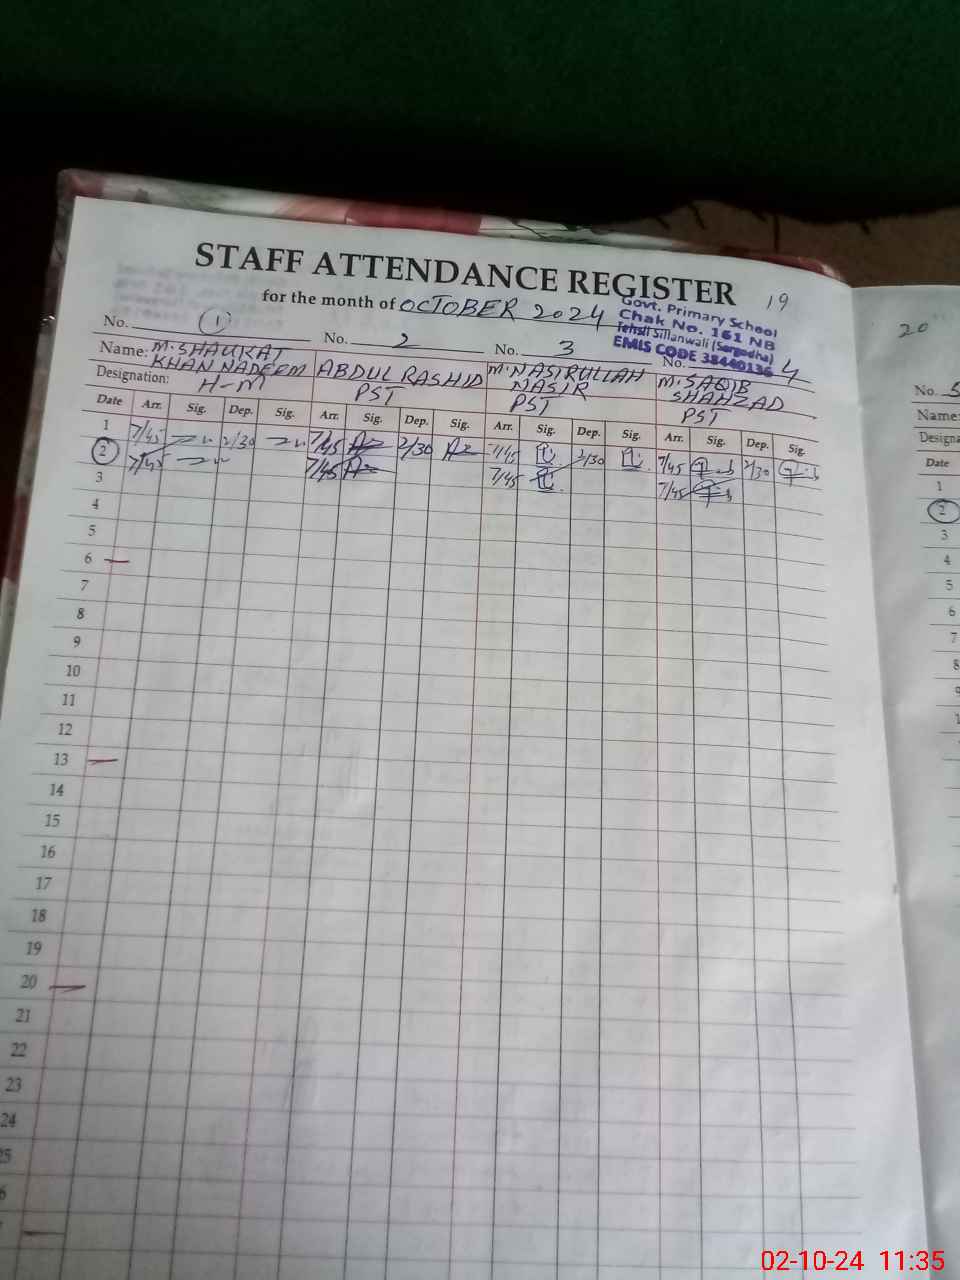 STAFF ATTENDANCE REGISTER
19
for the month of OCTOBER 2024
Govt. Primary School
Chak No. 161 NB
Tehsil Sillanwali (Sargodha)
EMIS CODE 38440136
No. 1 No. 2 No. 3 No. 4
Name: M. SHAUKAT KHAN NADEEM ABDUL RASHID M. NASIRULLAH NASIR M. SAQIB SHAHZAD
Designation: H-M PST PST PST
Date Arr. Sig. Dep. Sig. Arr. Sig. Dep. Sig. Arr. Sig. Dep. Sig. Arr. Sig. Dep. Sig.
1 7/45 2/30 7/45 2/30 7/45 2/30 7/45 2/30
2 7/45 7/45 7/45 7/45
3
4
5
6 —
7
8
9
10
11
12
13 —
14
15
16
17
18
19
20 —
21
22
23
24
20
No. 5
Name:
Date
1
2
3
4
5
6
7
8
02-10-24 11:35